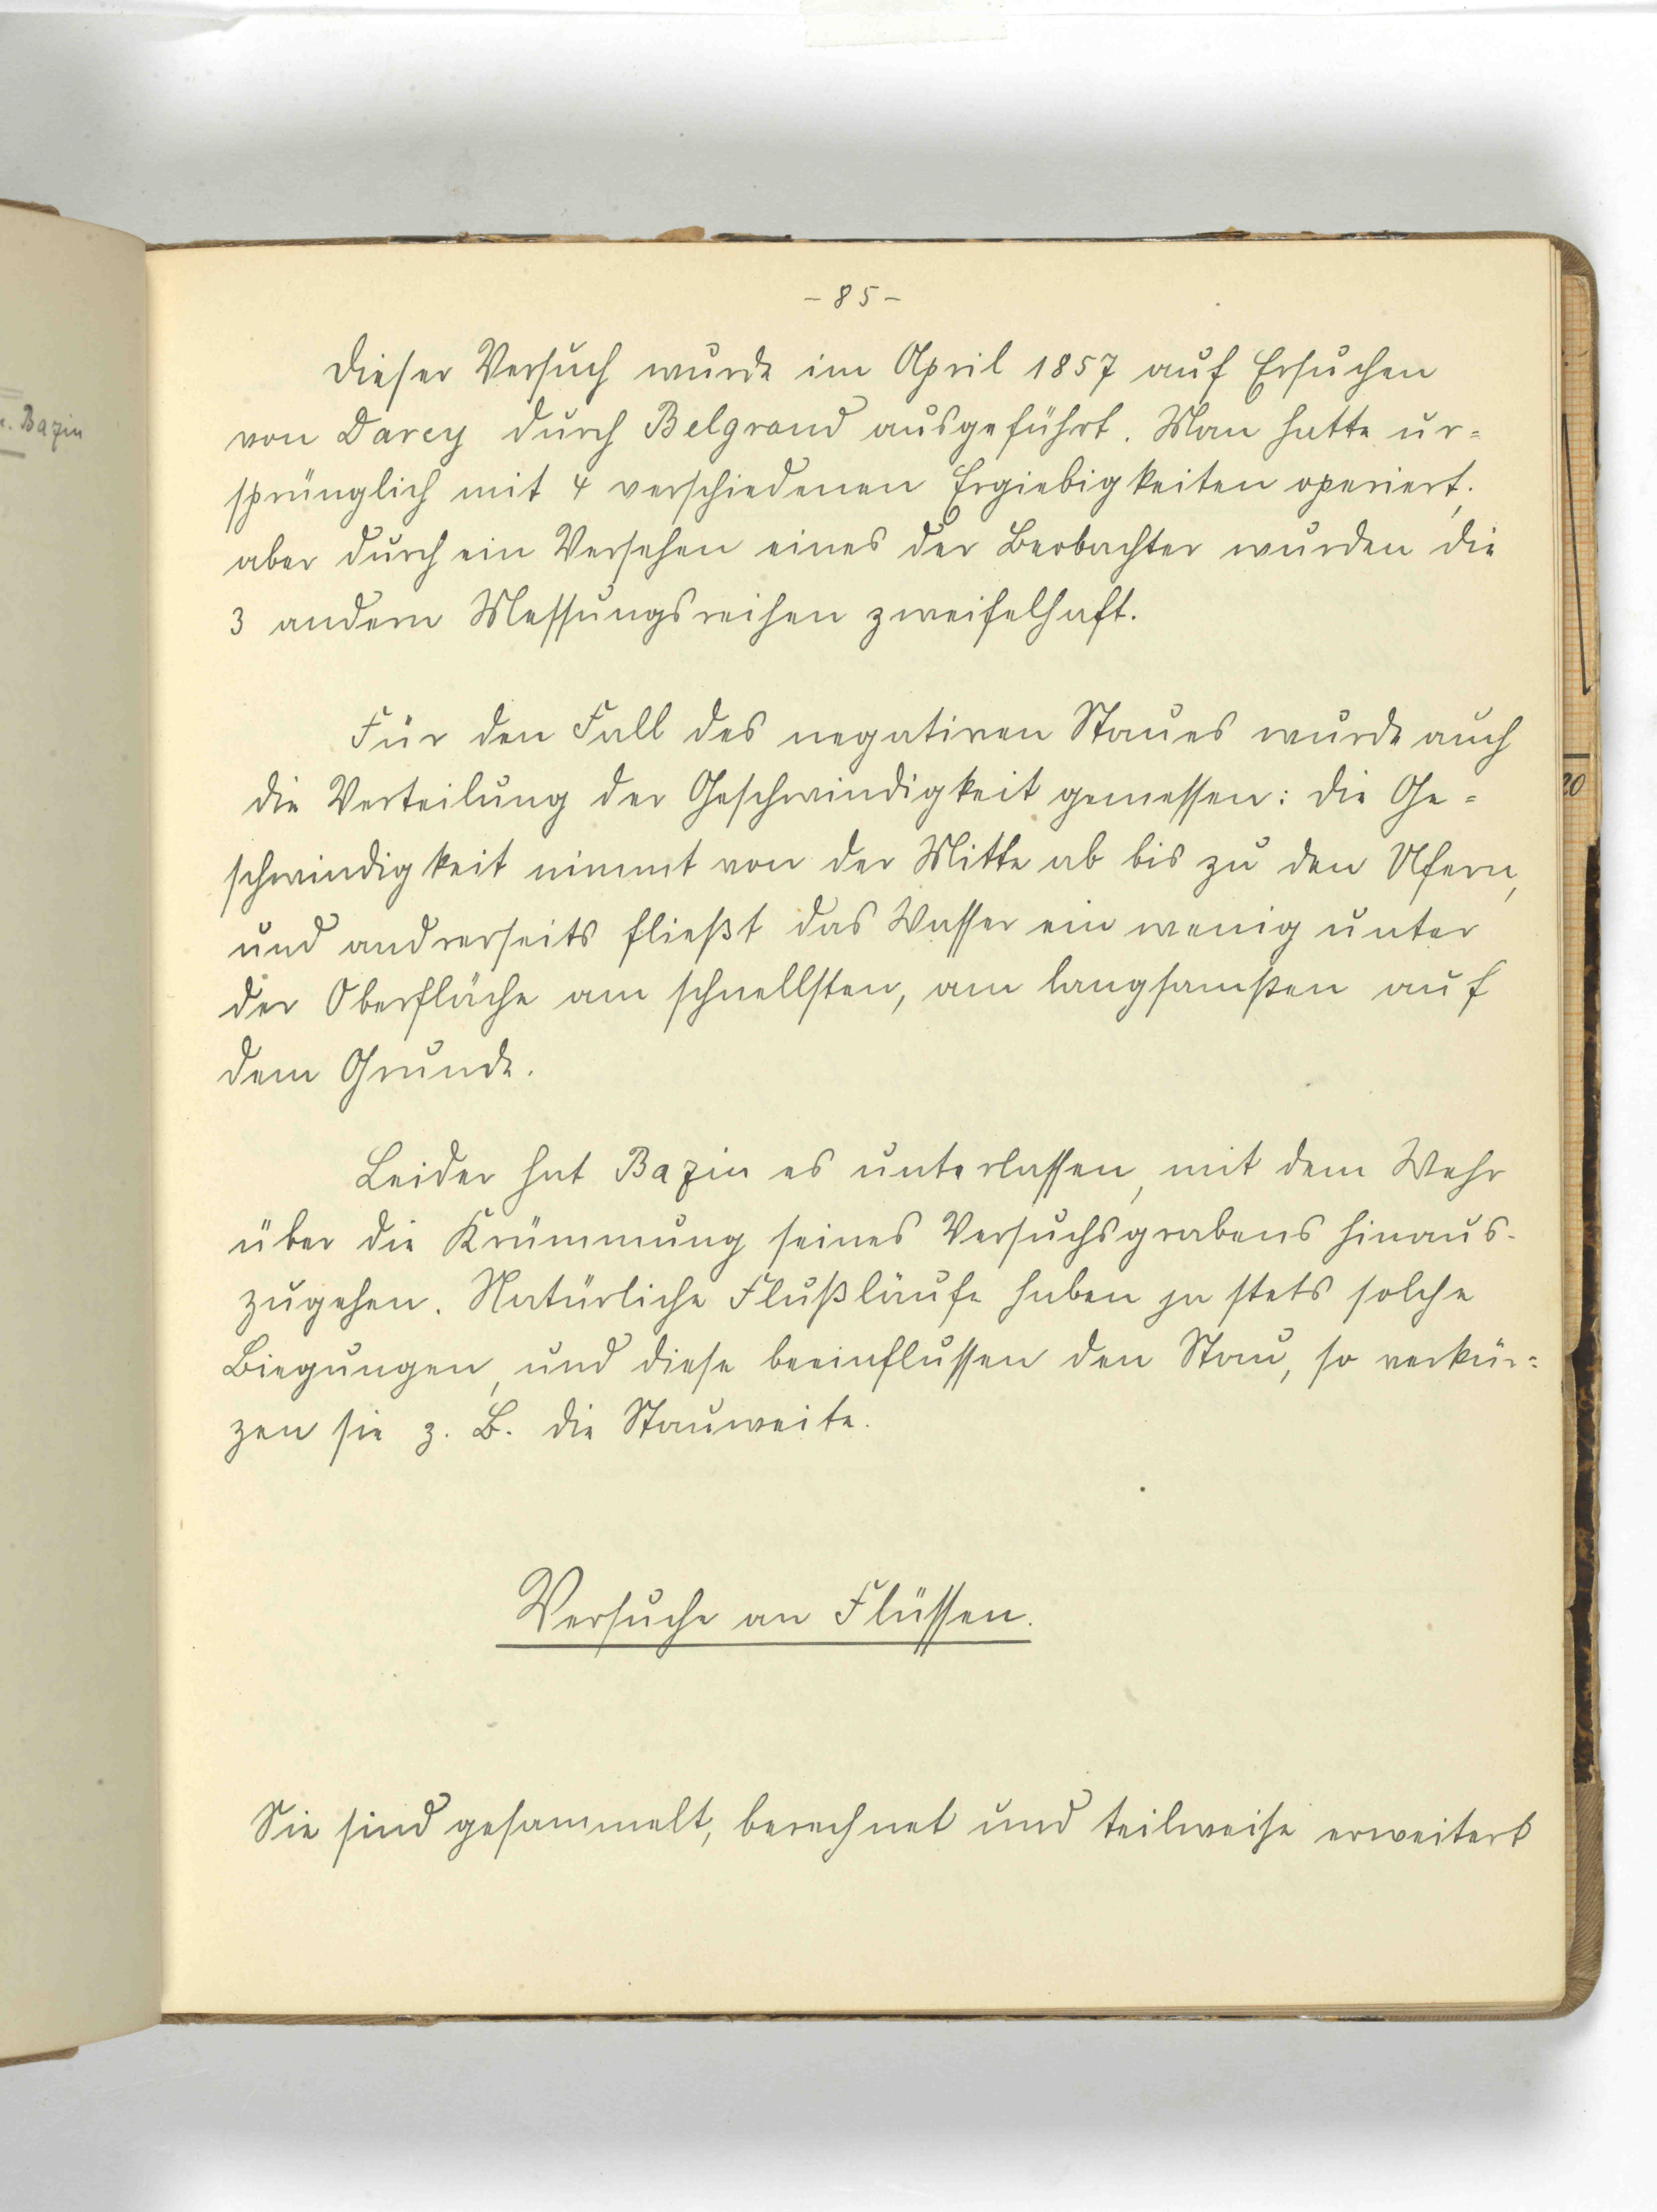 - 85 -
Dieser Versuch wurde im April 1857 auf Ersuchen
von Darcy durch Belgrand ausgeführt. Man hatte ur=
sprünglich mit 4 verschiedenen Ergiebigkeiten operiert,
aber durch ein Versehen eines der Beobachter wurden die
3 andern Messungsreihen zweifelhaft.
Für den Fall des negativen Staues wurde auch
die Verteilung der Geschwindigkeit gemessen: die Ge=
schwindigkeit nimmt von der Mitte ab bis zu den Ufern,
und andrerseits fließt das Wasser ein wenig unter
der Oberfläche am schnellsten, am langsamsten auf
dem Grunde.
Leider hat Bazin es unterlassen, mit dem Wehr
über die Krümmung seines Versuchsgrabens hinaus-
zugehen. Natürliche Flußläufe haben ja stets solche
Biegungen, und diese beeinflussen den Stau, so verkür=
zen sie z. B. die Stauweite.
Versuche an Flüssen.
Sie sind gesammelt, berechnet und teilweise erweitert
Bazin
20